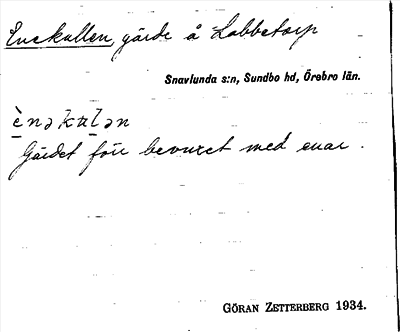 Enekullen, gärde å Labbetorp
Snavlunda s:n, Sundbo hd, Örebro län.
ènəkulən
Gärdet förr bevuxet med enar.
GÖRAN ZETTERBERG 1934.